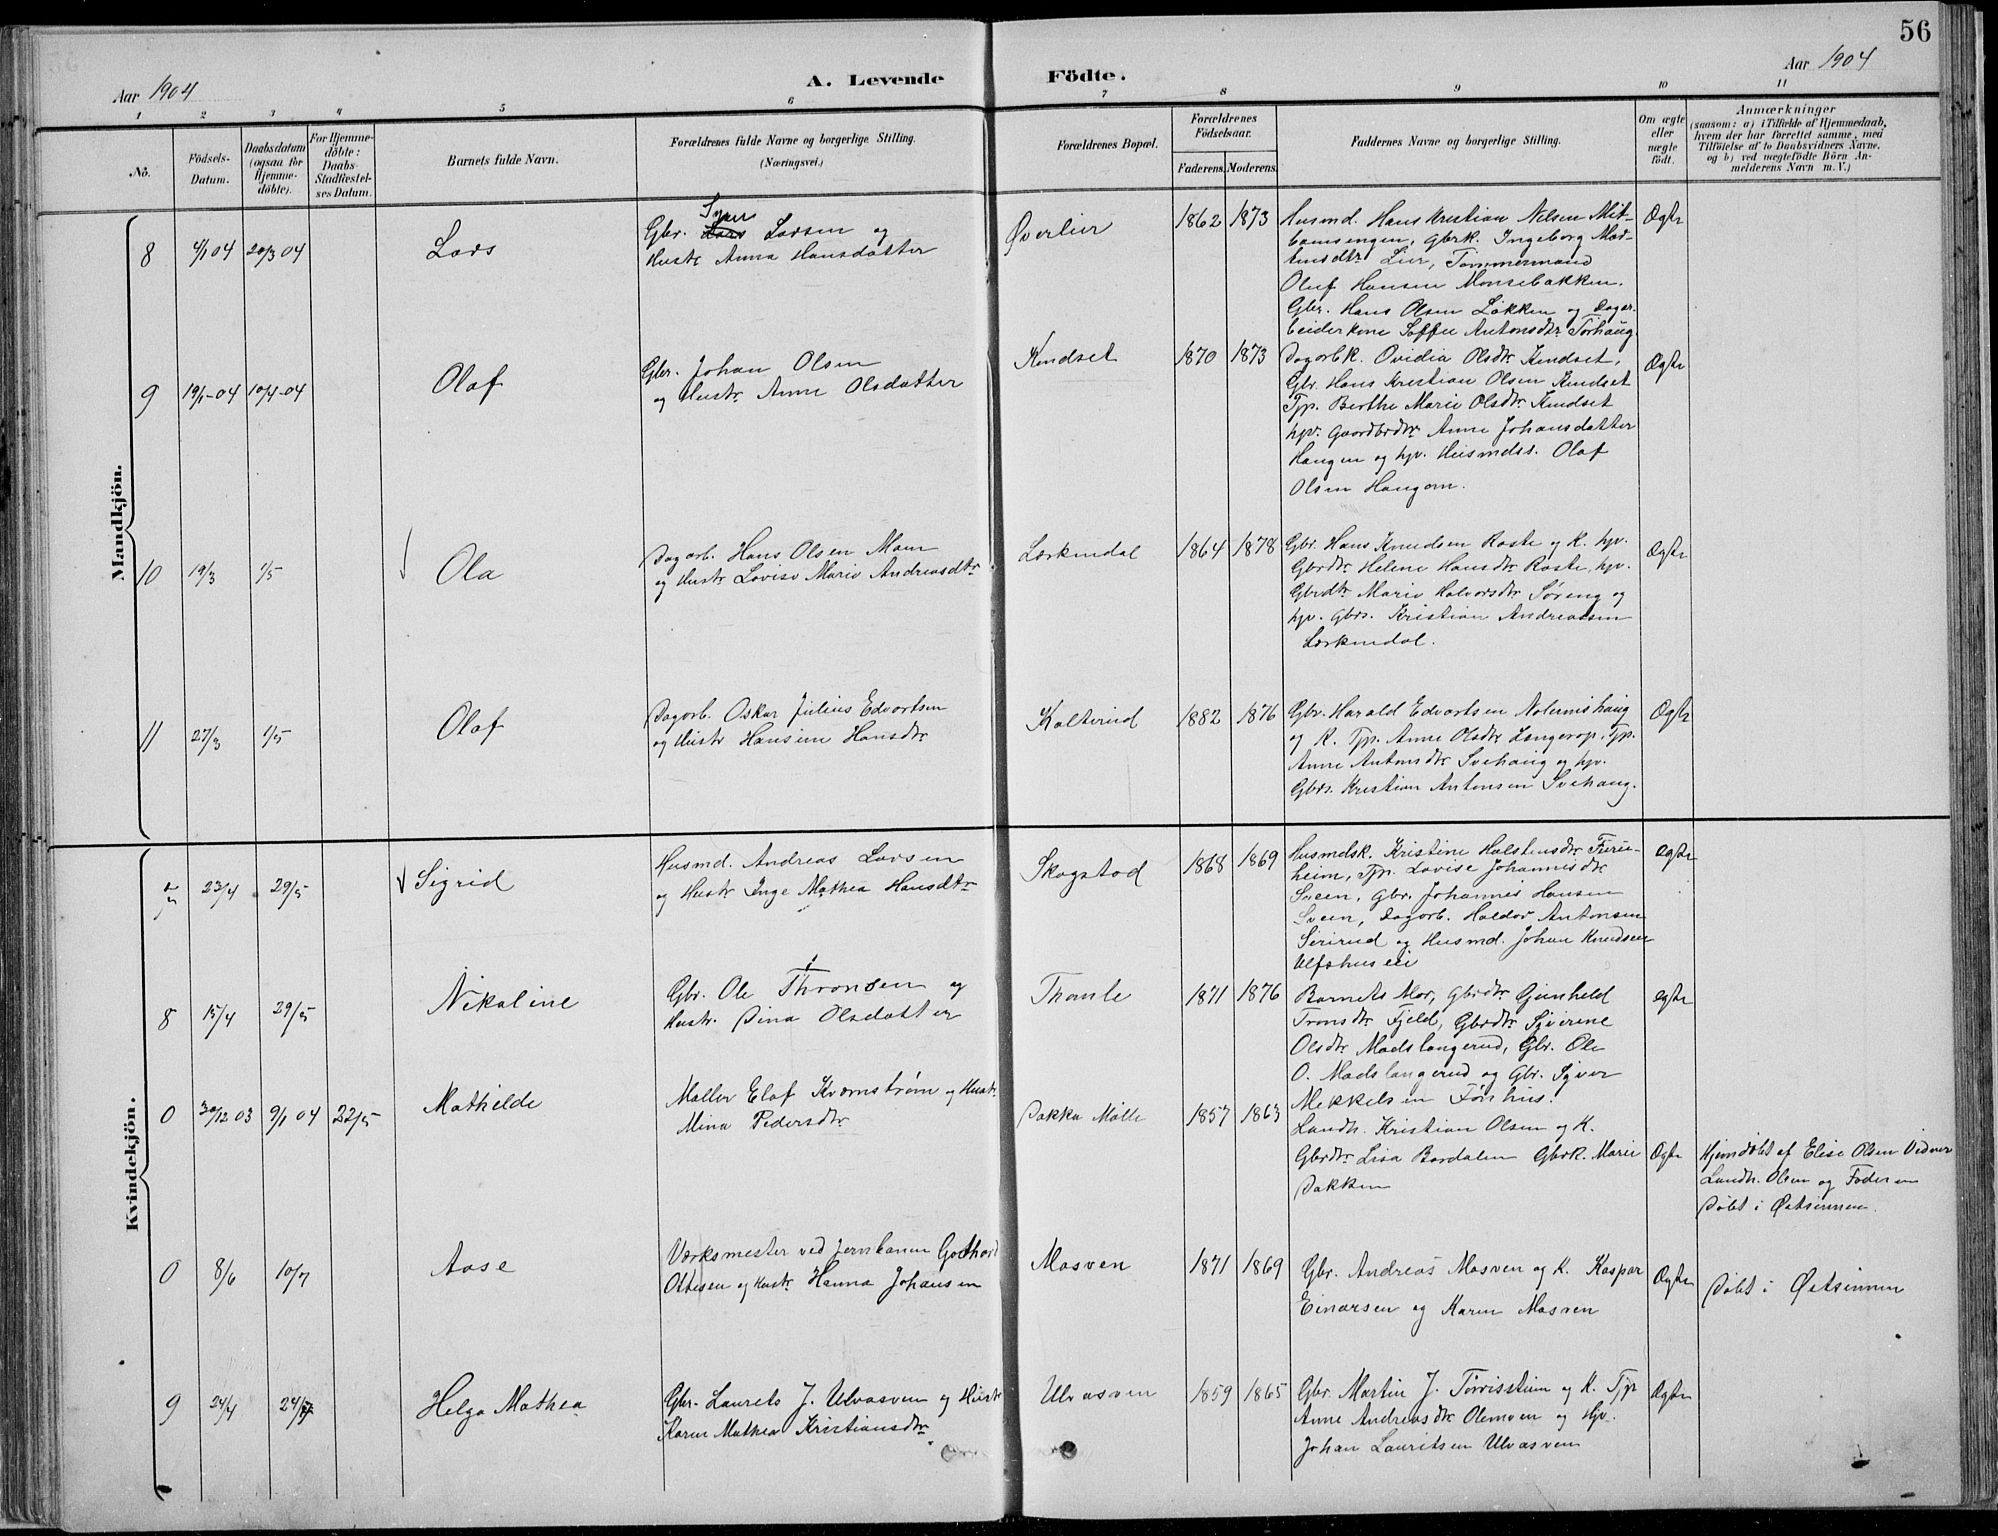 56
Aar 1904
A. Levende Födte.
Aar 1904
1 2 3 4 5 6 7 8 9 10 11
No.
Födsels-Datum.
Daabsdatum (ogsaa for Hjemme-döbte).
For Hjemme-döbte: Daabs-Stadfæstel-ses Datum.
Barnets fulde Navn.
Forældrenes fulde Navne og borgerlige Stilling.
(Næringsvei.)
Forældrenes Bopæl.
Forældrenes Födselsaar.
Faderens. Moderens.
Faddernes Navne og borgerlige Stilling.
Om ægte eller uægte födt.
Anmærkninger
(saasom: a) i Tilfælde af Hjemmedaab,
hvem der har forrettet samme, med
Tilföielse af to Daabsvidners Navne,
og b) ved uægtefödte Börn An-
melderens Navn m. V.)
Mandkjön.
8 4/1 04 20/3 04 Lars
Gbr. Lars Larsen og
Hustr. Anna Hansdatter
Øverlier 1862 1873
Husmd. Hans Kristian Nilsen
Gbrk. Ingeborg
Lier, Tømmermand
Oluf Hansen Monsebakken.
Gbr. Hans Olsen Løkken og Dagar-
beiderkone Antonsdtr. Torhaug.
Ægte
9 19/1-04 10/4-04 Olaf
Gbr. Johan Olsen
og Hustr. Anne Olsdatter
Kindset 1870 1873
Dagarbk. Ovidia Olsdtr. Kindset,
Gbr. Hans Kristian Olsen Kindset
Tjp. Berthe Marie Olsdtr. Kindset
hjv. Gaardbrdtr. Anne Johansdatter
Haugen og hjv. Husmdss. Olaf
Olsen Haugom.
Ægte
10 19/3 1/5 Ola
Dagarb. Hans Olsen Moen
og Hustr. Lovise Marie Andreasdtr.
Lerkindal 1864 1878
Gbr. Hans Knudsen Roste og K. hjv.
Gbrdtr. Helene Hansdtr. Roste, hjv.
Gbrdtr. Marie Halvorsdtr. Søreng og
hjv. Gbrs. Kristian Andreassen
Lerkindal.
Ægte
11 27/3 1/5 Olaf
Dagarb. Oskar Julius Edvartsen
og Hustr. Hansine Hansdtr.
Kalterud 1882 1876
Gbr. Harald Edvartsen
og K. Tjp. Anne Olsdtr. Tjp.
Anne Antonsdtr. Svehaug og hjv.
Gbrs. Kristian Antonsen Svehaug.
Ægte
Kvindekjön.
23/4 29/5 Sigrid
Husmd. Andreas Larsen
og Hustr. Inge Mathea Hansdtr.
Skogstad 1868 1869
Husmdsk. Kristine Holstensdtr. Furu-
heim, Tjp. Lovise Johannisdtr.
Sveen, Gbr. Johannes Hansen
Sveen, Dagarb. Haldor Antonsen
Sirirud og Husmd. Johan Knudsen
Ulfshus eie
Ægte
8 15/4 29/5 Nikoline
Gbr. Ole Thronsen og
Hustr. Dina Olsdatter
Thomle 1871 1876
Barnets Mor, Gbrdtr. Gunhild
Tronsdtr. Fjeld, Gbrdtr. Syverine
Olsdtr. Madslangerud, Gbr. Ole
O. Madslangerud og Gbr. Syver
Mekkelsen Førshus.
Ægte
0 30/12 03 9/1 04 22/5 Mathilde
Møller Elof Kvarnstrøm og Hustr.
Mina Pedersdtr.
Dokka Mølle 1857 1863
Landh. Kristian Olsen og K.
Gbrdtr. Lisa Bardalen Gbrk. Marie
Dokken
Ægte
Hjemdøbt af Elise Olsen Vidner
Landh. Olsen og Faderen
Døbt i Østsinnen.
0 8/6 10/7 Aase
Værksmester ved Jernbanen Gothard
Ottesen og Hustr. Hanna Johansen
Mosven 1871 1869
Gbr. Andreas Mosven og K. Kaspar
Einarsen og Karen Mosven
Ægte
Døbt i Østsinnen
9 24/4 24/7 Helga Mathea
Gbr. Laurits J. Ulvasven og Hustr.
Karen Mathea Kristiansdtr.
Ulvasven 1859 1865
Gbr. Martin J. og K. Tjp
Anne Andreasdtr. Olemoen og Hjv.
Johan Lauritsen Ulvasven
Ægte